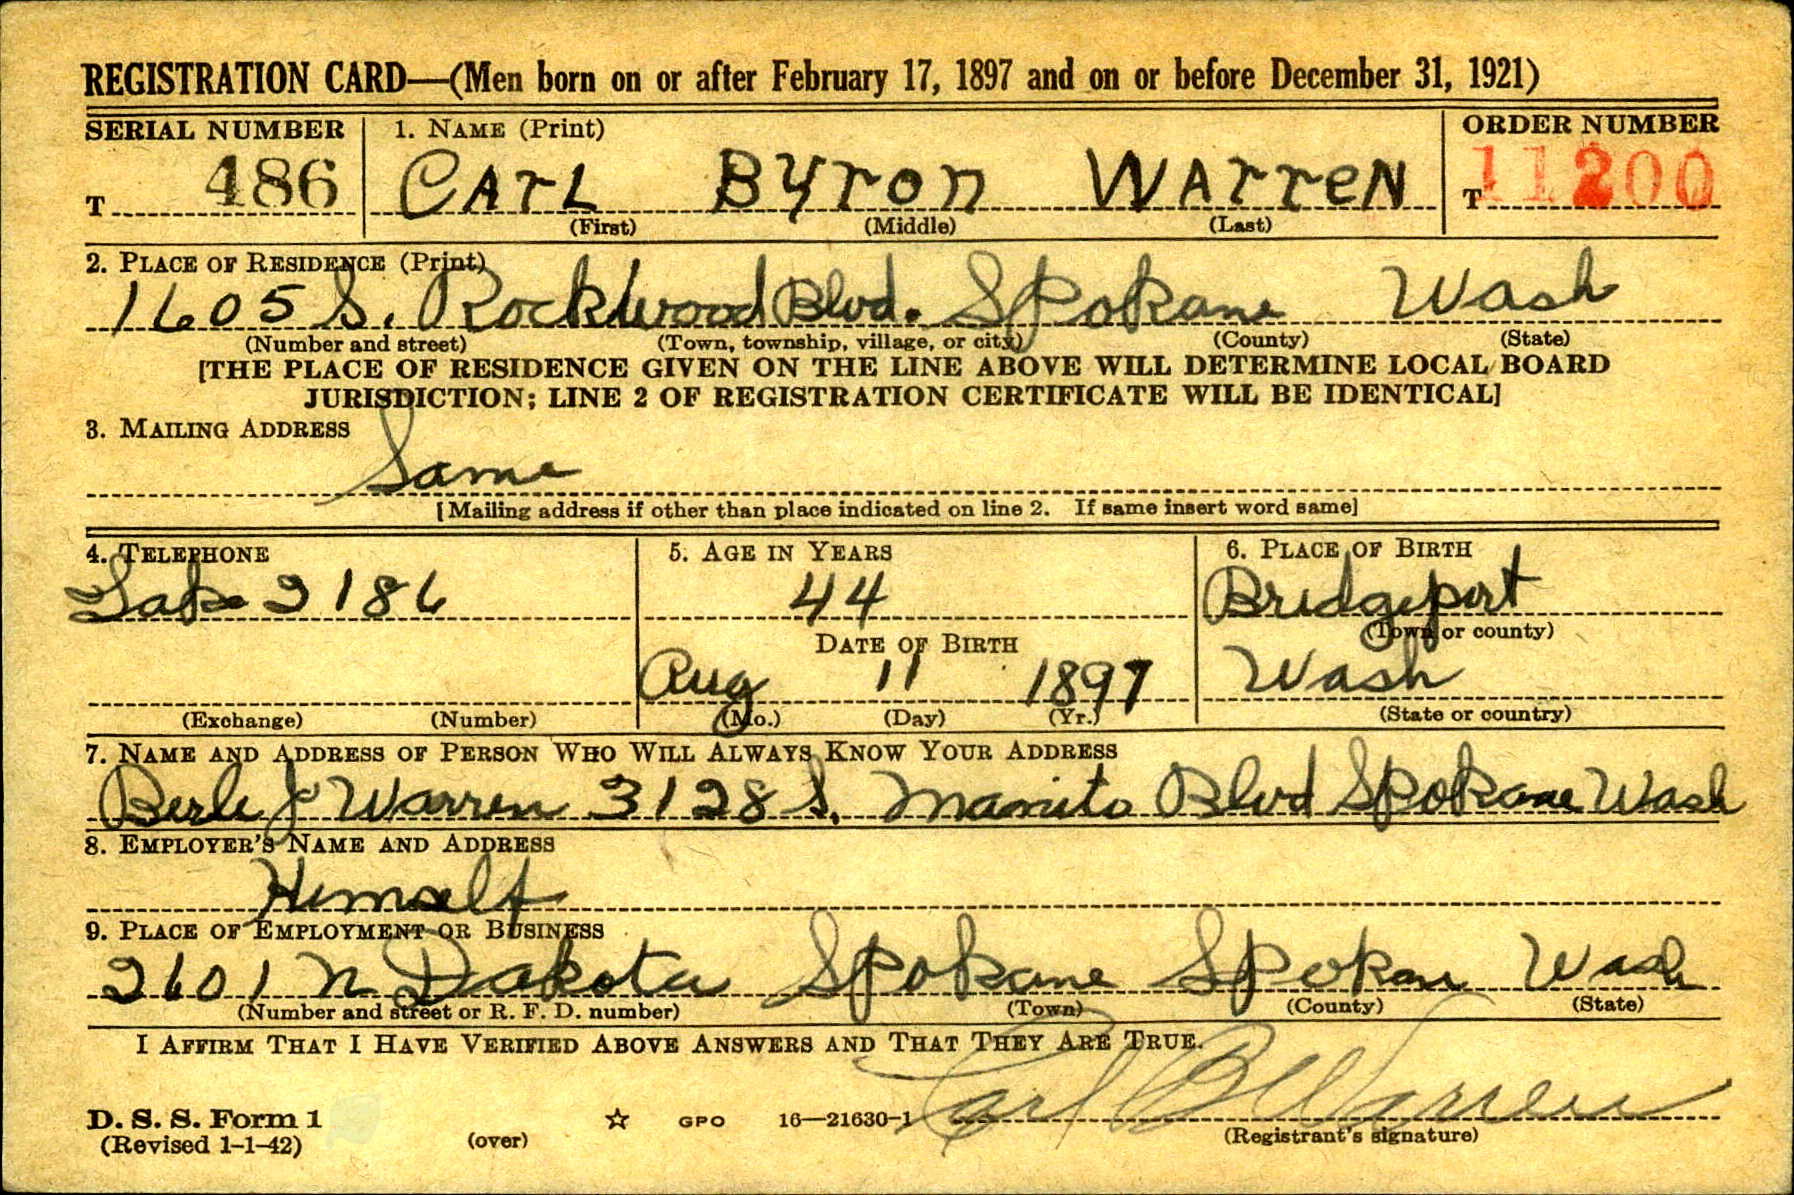 REGISTRATION CARD—(Men born on or after February 17, 1897 and on or before December 31, 1921)
SERIAL NUMBER 1. NAME (Print) ORDER NUMBER
T 486 CArL Byron WArreN T 11200
(First) (Middle) (Last)
2. PLACE OF RESIDENCE (Print)
1605 S. Rockwood Blvd. Spokane Wash
(Number and street) (Town, township, village, or city) (County) (State)
[THE PLACE OF RESIDENCE GIVEN ON THE LINE ABOVE WILL DETERMINE LOCAL BOARD
JURISDICTION; LINE 2 OF REGISTRATION CERTIFICATE WILL BE IDENTICAL]
3. MAILING ADDRESS
Same
[Mailing address if other than place indicated on line 2. If same insert word same]
4. TELEPHONE 5. AGE IN YEARS 6. PLACE OF BIRTH
Lake 2186 44 Bridgeport
(Town or county)
DATE OF BIRTH
Aug 11 1897 Wash
(Exchange) (Number) (Mo.) (Day) (Yr.) (State or country)
7. NAME AND ADDRESS OF PERSON WHO WILL ALWAYS KNOW YOUR ADDRESS
Berle J Warren 3128 S. Manito Blvd Spokane Wash
8. EMPLOYER'S NAME AND ADDRESS
Himself
9. PLACE OF EMPLOYMENT OR BUSINESS
2601 N Dakota Spokane Spokane Wash
(Number and street or R. F. D. number) (Town) (County) (State)
I AFFIRM THAT I HAVE VERIFIED ABOVE ANSWERS AND THAT THEY ARE TRUE.
Carl B Warren
D. S. S. Form 1
(Revised 1-1-42) (over) ☆ GPO 16—21630-1 (Registrant's signature)